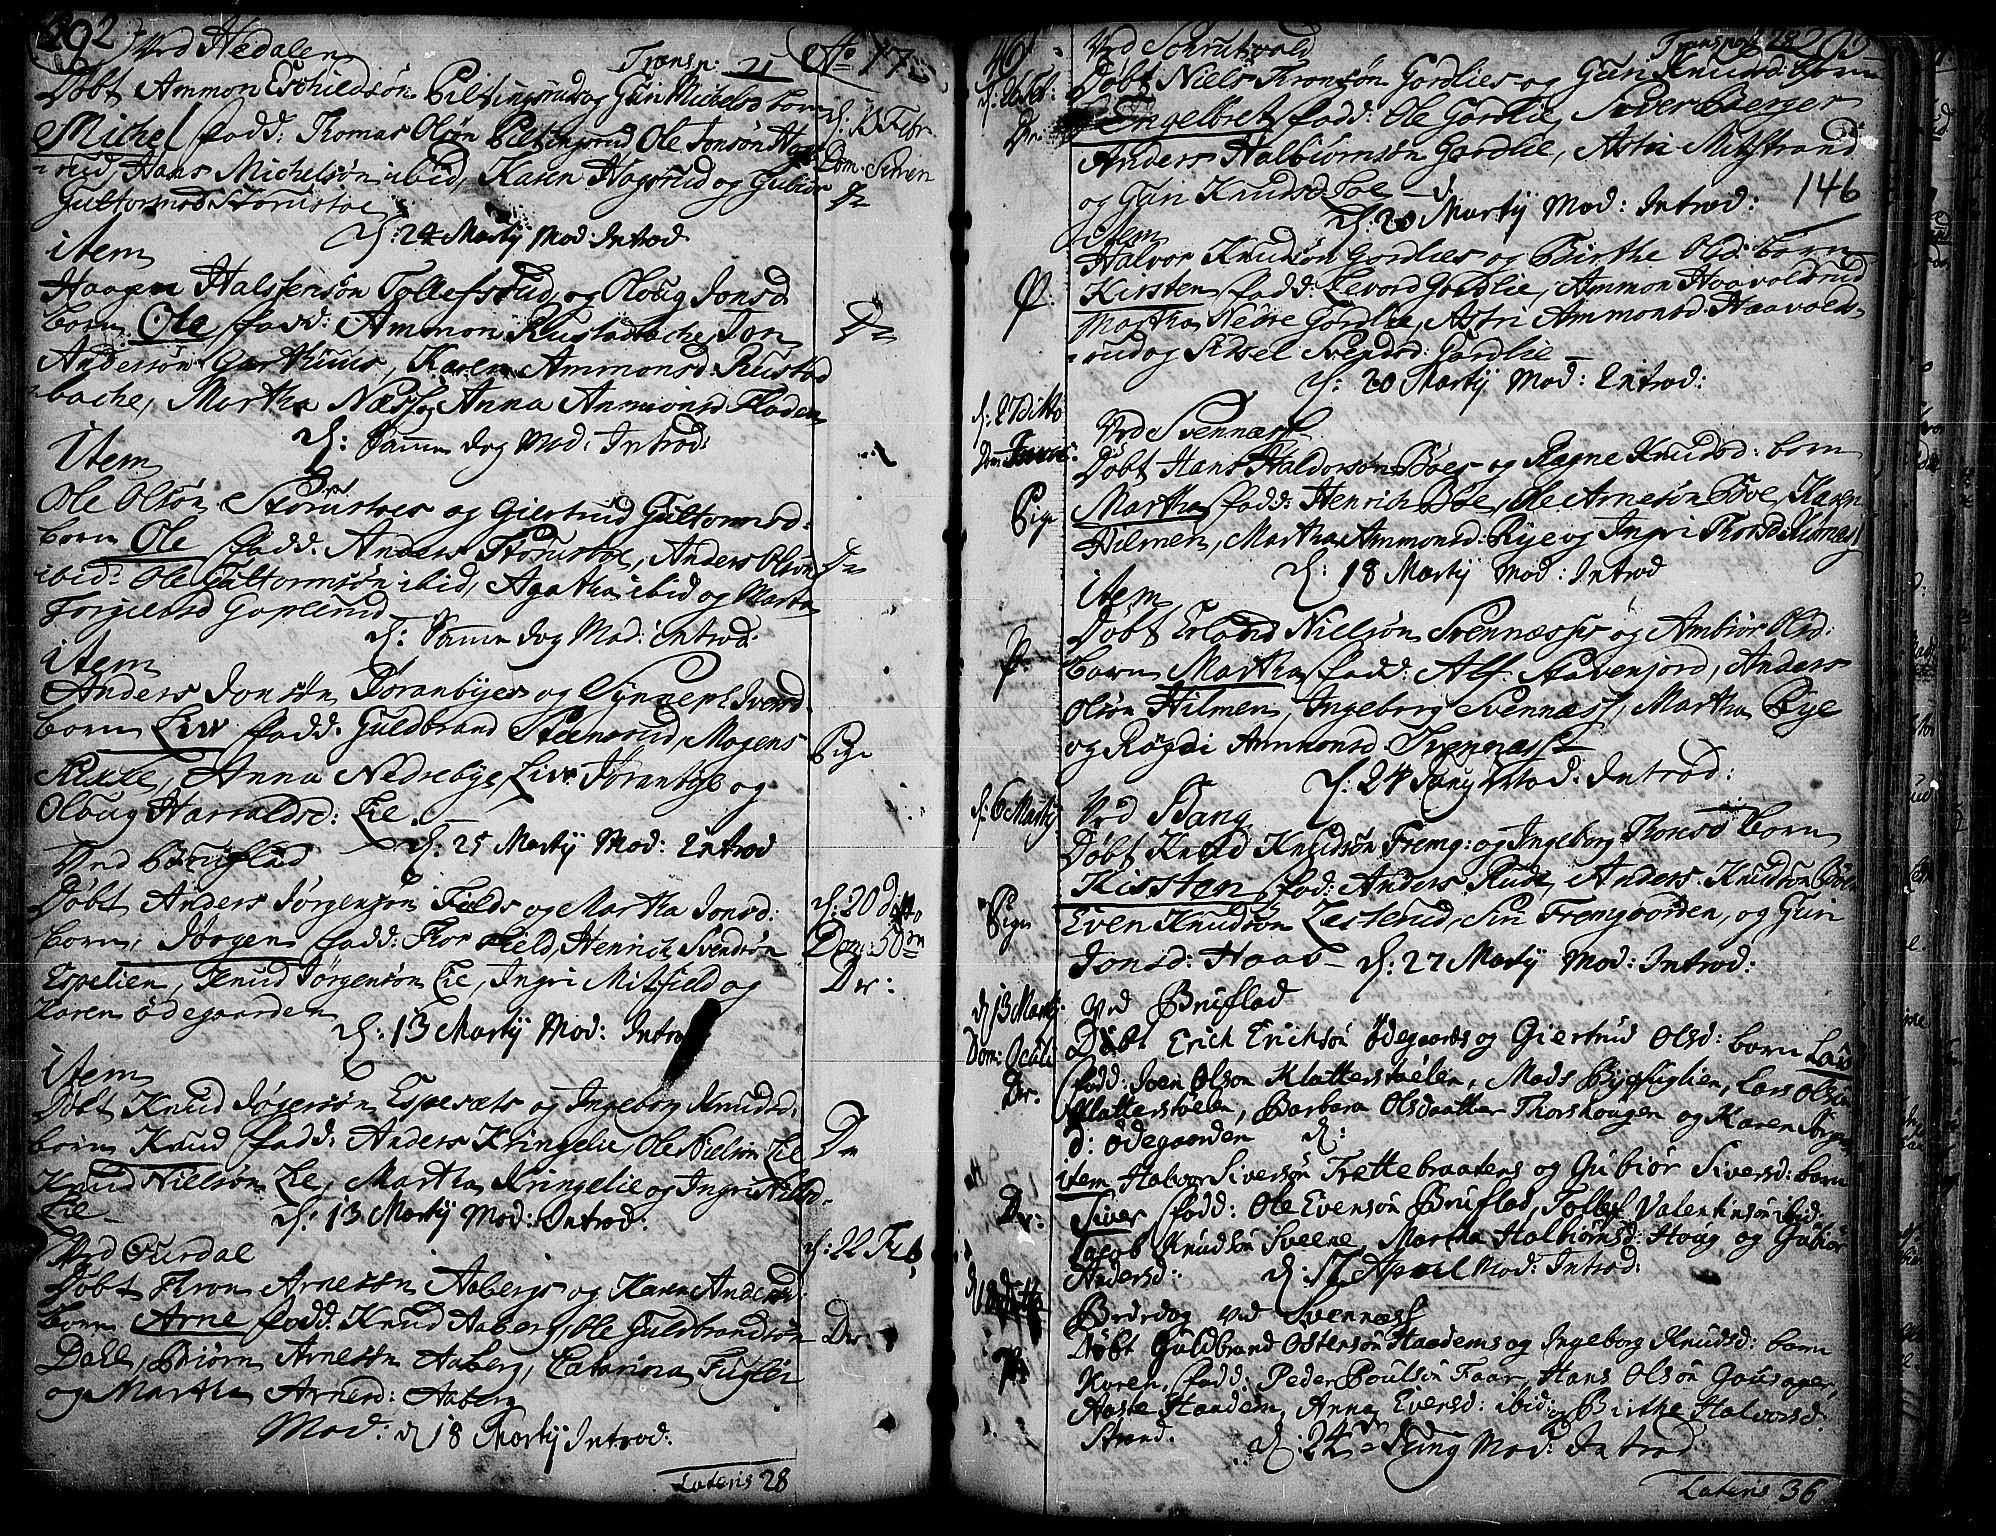 292
Ved Hedalen
Transp: 21
Ao 17
Døbt Ammon Eschildsøn Piltingsruds og Guri Michelsd born
Michel fadd: Thomas Olsøn Piltingsrud Ole Jonsøn Hags
rud, Hans Michelsøn ibid, Karen Hagsrud og Gubiør
Guttormsd Storustoe
d: 13 Febr
Dom.
Dr
d: 24 Martij Mod: Introd
item
Haagen Halstensøn Tollefsrud og Oloug Jonsd
born Ole fadd: Ammon Rustadbache, Jon
Andersøn Garthuus, Karen Ammonsd: Rustad
bache, Martha Næss og Anna Ammonsd Floden
Dr
d: Samme dag Mod: Introd:
item
Ole Olsøn Storustoes og Giertrud Guttormsd:
born Ole fadd: Anders Storustoe, Anders Olsøn
ibid: Ole Guttormsøn ibid, Agatha ibid og Marta
Torgiersd Goplerud
Dr
d: Samme dag Mod: introd:
item
Anders Jonsøn Joranbyes og Synneve Iversd
born Liv fadd: Guldbrand Steensrud, Mogens
Anna Nedrebye, Liv Joranbye og
Oloug Harraldsd: Lie
Pige
d: 25 Martij Mod: Introd
Ved Bruflad
Døbt Anders Jørgensøn Fields og Martha Jonsd:
born, Jørgen fadd: Thor Field, Henrich Svendsøn
Espelien, Knud Jørgensøn Lie, Ingri Mitfield og
Karen Ødegaarden
d: 20 Ditto
Dr:
d: 13 Martij Mod: Introd
item
Døbt Knud Espesæts og Ingeborg Knudsd:
born Knud fadd: Anders Kringelie, Ole Nielsøn Lie
Knud Nielsøn Lie, Martha Kringelie og Ingri Nielsd
Lie
Dr
d: 13 Martij Mod: Introd:
Ved Aurdal
d: 22 Feb
Døbt Thron Arnessøn Aabergs og Karen Andersd:
born Arne fadd: Knud Aaberg, Ole Guldbrandsøn
Dahl, Biørn Arnesøn Aaberg, Catarina Fuglei
og Martha Arnesd: Aaberg
Dr:
Mod: d 18 Martij Introd:
Lateris 28
46
Ved Schrutvold
Transport 28
292
Døbt Niels Thronsøn Gordlies og Guri Knudsd: born
Engelbret fadd: Ole Gordlie, Siver Berger
Anders Halbiørnsøn Gordlie, Astri Mitstrand
og Guri Knudsd Boe
Dr:
146
d: 20 Martij Mod: Introd:
item
Halvor Knudsøn Gordlies og Birthe Olsd: born
Kirsten fadd: Levord Gordlie, Ammon Haavoldsrud
Martha Nedre Gordlie, Astri Ammonsd: Haavolds
rud og Sidsel Svendsd: Gordlie
P:
d: 20 Martij Mod: Introd:
d: 27 ditto
Ved Svennæss
Døbt Hans Haldorsøn Bøes og Ragne Knudsd: born
Martha fadd: Henrich Bøe, Ole Arnesøn Bøe, Karen
Hilmen, Martha Ammonsd: Rye og Ingri Thorsd
Pige
d: 18 Martij Mod: Introd
item
Døbt Erland Nielsøn Svennæsses og Ambiør Olsd:
born Martha fadd: Alf Stavenjord, Anders
Olsøn Hilmen, Ingeborg Svennæss, Martha Rye
og Røgdi Ammonsd Svennæss
P:
d: 24 Mod: Introd:
d: 6 Martij
Ved Bang
Døbt Knud Knudsøn Fremg: og Ingeborg Thoresd born
Kirsten fad: Anders Rude, Anders Knudsøn
Even Knudsøn Lesterud, Siri Fremgaarden, og Guri
Jonsd: Haas
Pige
d: 27 Martij Mod: Introd:
d 13 Martij
Dom: Oculi
Ved Bruflad
Døbt Erich Erichsøn Ødegaards og Giertrud Olsd: born
fadd: Joen Olsøn Klatterstøelen, Mads Bygfuglien, Lars Olsøn
Klatterstøelen, Barbara Olsdaatter Thorshougen og Karen
d: Ødegaarden d:
Dr.
item Halvor Siversøn Trettebraatens og Gubiør Siversd: born
Siver fadd: Ole Evensøn Bruflad, Tollef Valentinsøn ibid:
Jacob Knudsøn Sveene, Martha Halbiørnsd: Houg og Gubiør
Andersd:
Dr:
d: 17 April Mod: Introd:
Bededag ved Svennæss
Døbt Guldbrand Ostensøn Haadems og Ingeborg Knudsd: born
Karen, fadd: Peder Poulsøn Faar, Hans Olsøn Gousager,
Aaste Haadem, Anna Eversd: ibid: og Birthe Halvorsd:
Strand.
d: 24 Mod: Introd:
Lateris 36